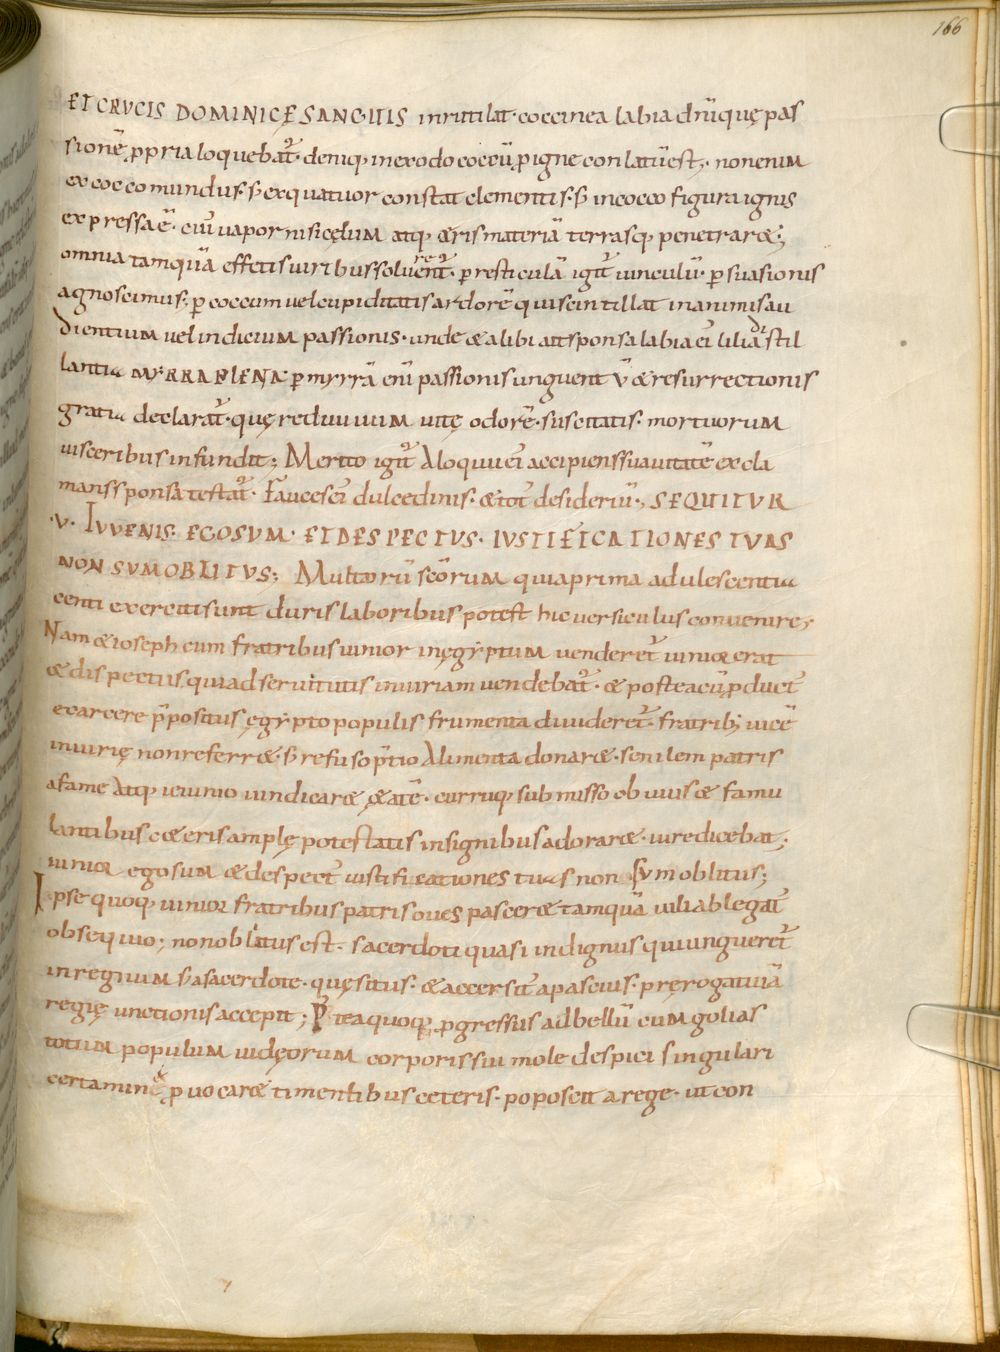 166
ET CRVCIS DOMINICĘ SANGUIS inrutilat· coccinea labia dn̄iquę pas
sionē ꝓpria loquebat᷑· deniq; inexodo coccū ꝓ igne conlatū est;· non enim
ex cocco mundus· s; exquatuor constat elementis· s; incocco figura ignis
expressa ē· cui᷒ uapor nisi cęlum atq; aeris materiā terrasq; penetraret;
omnia tamquā effetis uiribus soluerent᷑· p resticulā igit᷑ uinculū· p suasionis
agnoscimus; p coccum uel cupiditatis ardorē qui scintillat in animis au
dientium uel indicium passionis· unde & alibi ait sponsa labia ei᷒ lilia distil
lantia MYRRA PLENA· p myrrā eni᷒ passionis unguent v̄ & resurrectionis
gratia declarat᷑· quę rediuiuum uitę odorē· suscitatis· mortuorum
uisceribus infundit; Merito igit᷑ Aloquii ei᷒ accipiens suauitatē excla
mans sponsa testat᷑· Fauces ei᷒ dulcedinis· & tot᷒ desideriū·; SEQUITUR
·V· IVVENIS EGO SUM· ET DESPECTUS· IUSTIFICATIONES TUAS
NON SUM OBLITUS; Multorū sc̄orum quia prima adulescentia
centi exerciti sunt duris laboribus potest hic uersiculus conuenire;
Nam & ioseph cum fratribus iunior in ęgyptum uenderet᷑ iunior erat
& dispectus, quia ad seruitutis iniuriam uendebat᷑· & postea cū ꝓduct᷒
e carcere p̄positus ęgypto populis frumenta diuideret᷑· fratrib; uicē
iniurię non referr&· s; refuso p̄tio Alimenta donar&· senilem patris
a fame Atq; ieiunio uindicar& ęatē· curruq; submisso ob uius & famu
lantibus c&eris amplę potestatis insignibus adorar&· iure dicebat;
iunior ego sum & despect᷒ iustificationes tuas non sum oblitus;
Ipse quoq; iunior fratribus patris oues pascer& tamquā uili ablegat᷒
obsequio; non oblitus est· sacerdoti quasi indignus qui ungueret᷑
in regnum s; a sacerdote· quęsitus· & accersit᷒ a pascuis· pręrogatiuā
regię unctionis accepit; Postea quoq; ꝓgressus ad bellū cum golias
totum populum iudęorum corporis sui mole despici singulari
certamine ꝓuocar& timentibus ceteris· poposcit a rege· ut con